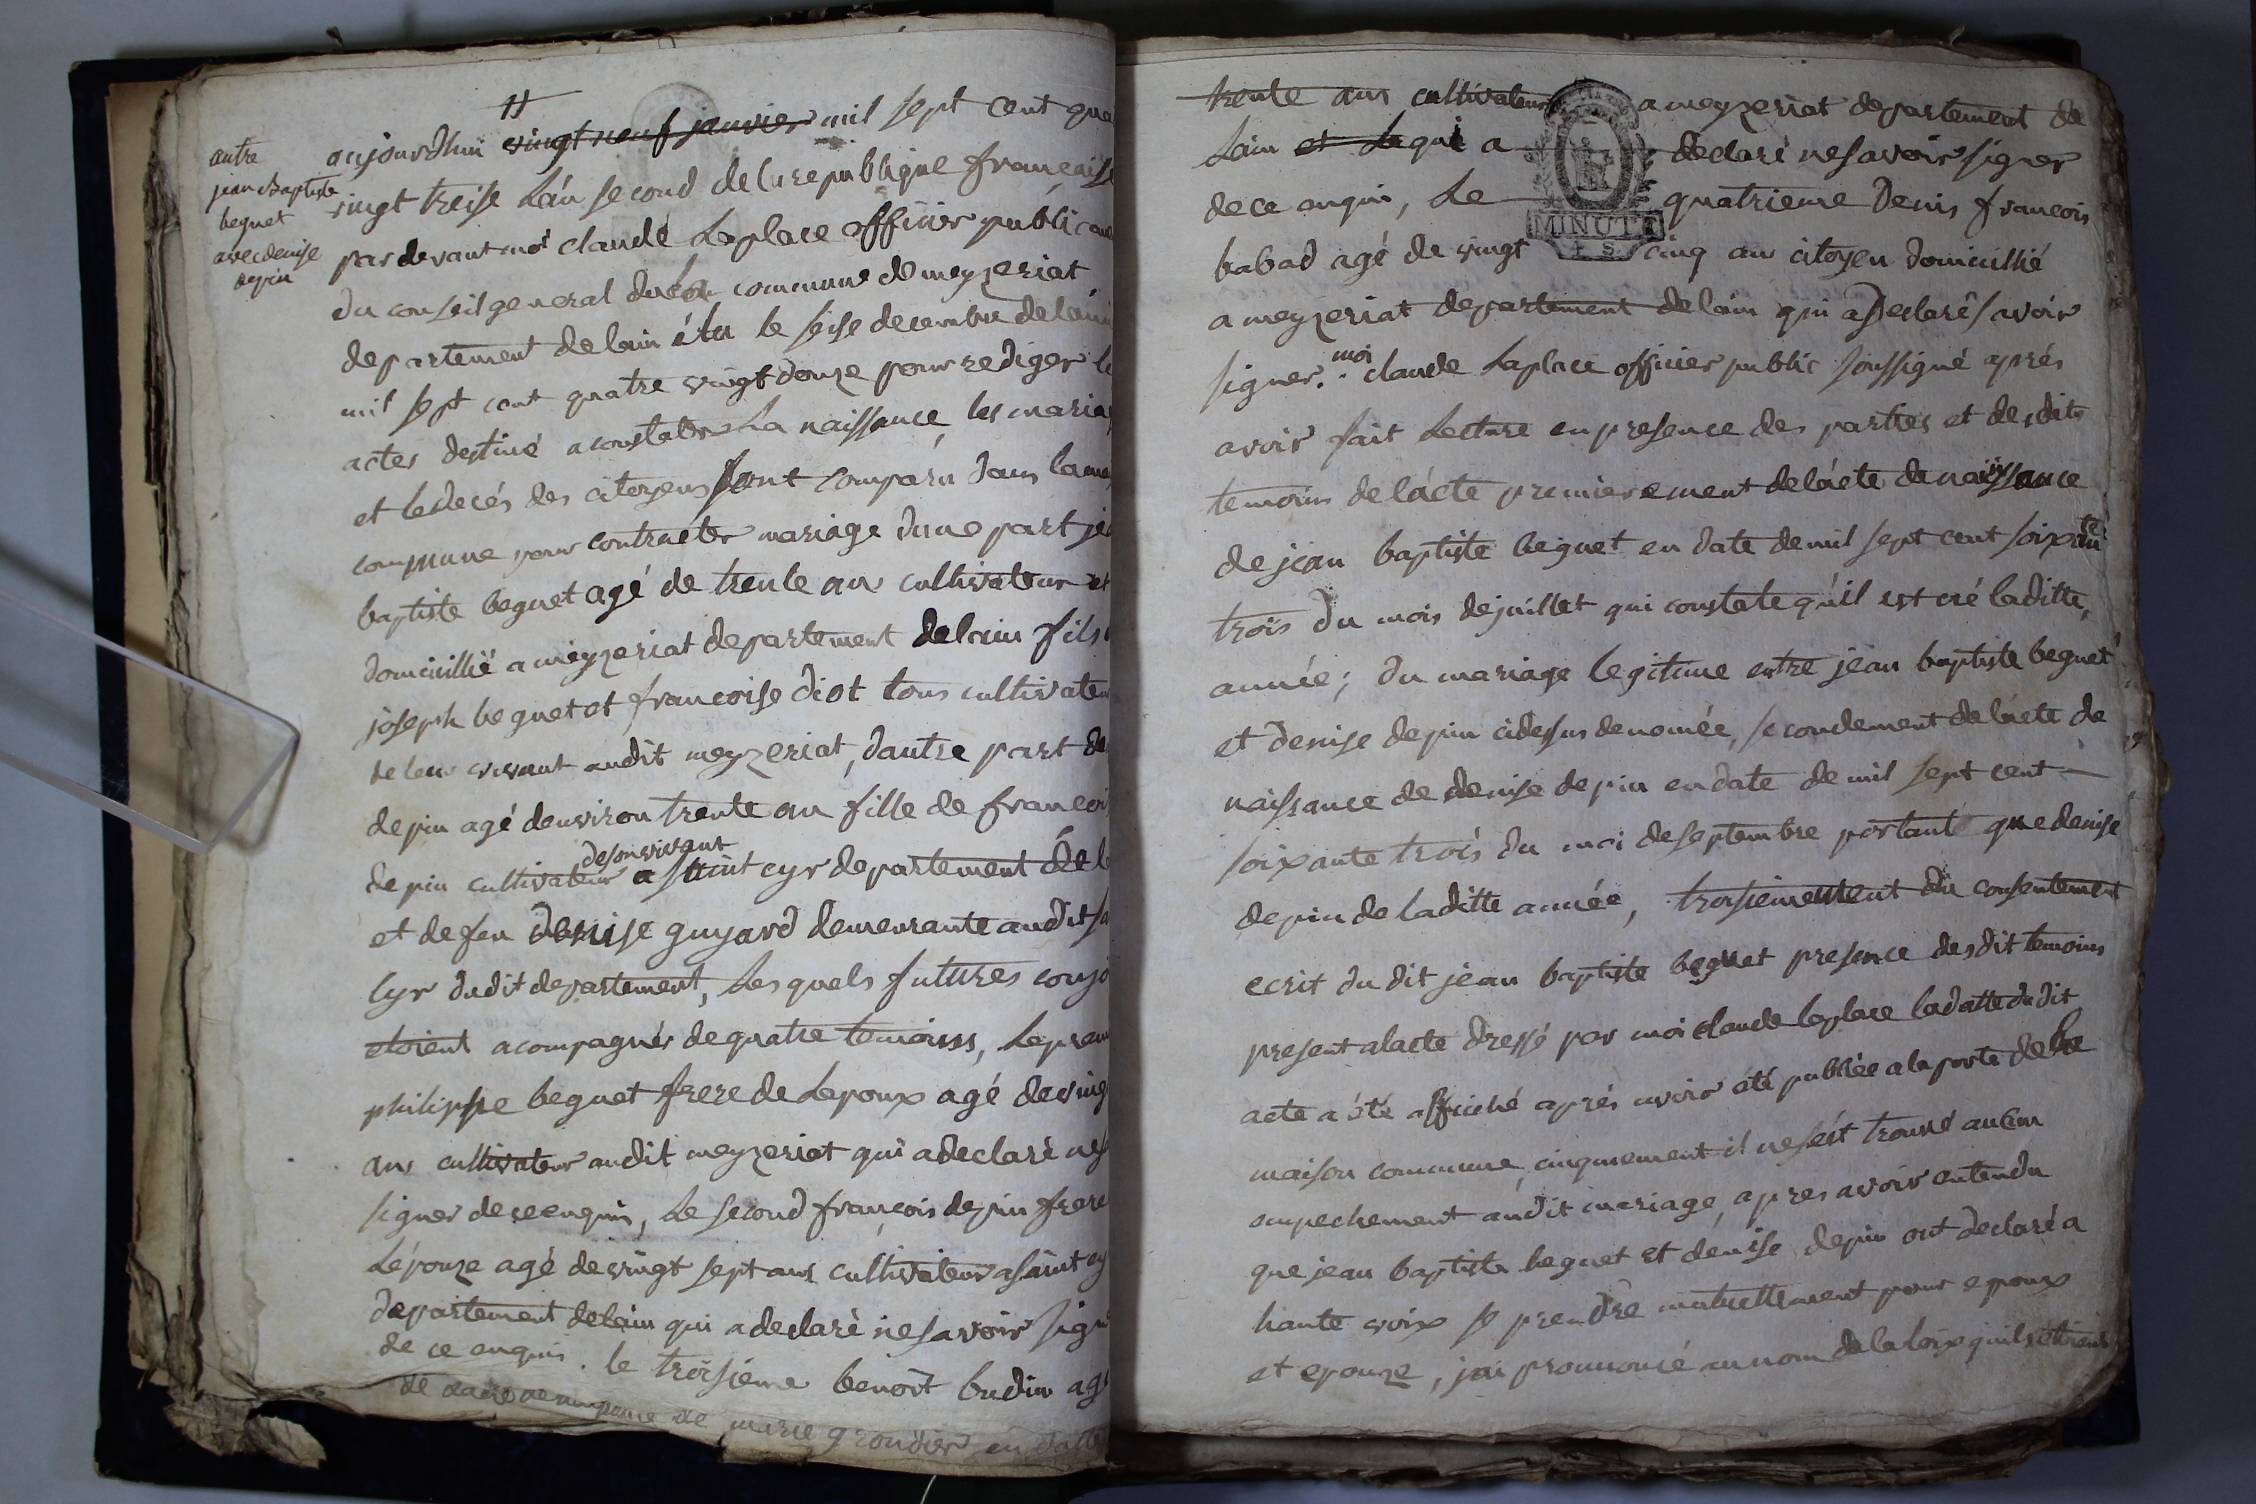 11
autre
jean Baptiste
beguet
avec denise
depin
aujourdhui vingt neuf janvier mil sept cent qua
vingt treise L'an second de la republique francaise
par devant moi claude Laplace officier public
du conseil general commune de meyzeriat
departement de lain élu le seise decembre de l'an
mil sept cent quatre vingt douze pour rediger le
actes destiné a constater La naissance, les maria
et le decés des citoyens sont comparu dans la
commune pour contracter mariage dune part je
baptiste beguet agé de trente ans cultivateur et
domicillié a meyzeriat departement de lain fils
joseph beguet et francoise diot tous cultivateu
de leur vivant audit meyzeriat, dautre part de
depin agé denviron trente an fille de francoi
de son vivant
depin cultivateur a saint cyr departement de l
et de feu denise guyard demeurante audit sa
Cyr dudit departement, Les quels futures conjo
etoient acompagnés de quatre temoins, Le prem
philippe beguet frere de Lepoux agé de ving
ans cultivateur audit meyzeriat qui a declaré ne s
signer de ce enquis, Le second françois depin frere
Lépouze agé de vingt sept ans cultivateur a saint cy
departement de lain qui a declaré ne savoir sign
de ce enquis. le troisieme benoit budin agé
de marie grondier en datte
trente ans cultivateur a meyzeriat departement de
Lain et Le qui a declaré ne savoir signer
de ce enquis, Le quatrieme Denis francois
babad agé de vingt cinq ans citoyen domicillié
MINUT
a meyzeriat departement de lain qui a Declaré savoir
moi
signer. claude Laplace officier public soussigné aprés
avoir fait Lecture en presence des parties et desdits
temoins de lácte premierement de lácte de naissance
de jean baptiste beguet en date de mil sept cent soixante
trois du mois de juillet qui constate qu'il est né laditte,
année; du mariage legitime entre jean baptiste beguet
et denise depin cidessus denomée, secondement de lácte de
naissance de denise depin en date de mil sept cent
soixante trois du moi de septembre portant que denise
depin de laditte année, troisiemement du consentement
ecrit du dit jean baptiste beguet presence desdit temoins
present alacte dressé par moi claude laplace la datte du dit
acte a été affiché aprés avoir eté publiée a la porte de la
maison commune, cinquement il ne sést trouvé aucun
empechement audit mariage, apres avoir entendu
que jean baptiste beguet et denise depin ont declaré a
haute voix se prendre mutuellement pour epoux
et epouze, jai prononcé au nom de la loix quils etoient